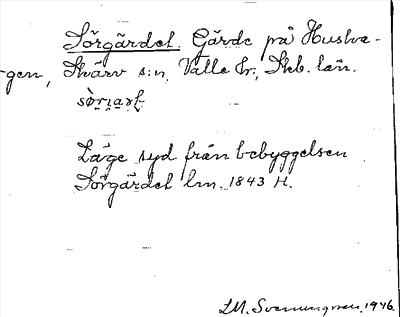 Sörgärdet. Gärde på Husha-
-gen, Skärv s:n, Valle hr., Skb. län.
Läge syd från bebyggelsen
Sörgärdet lm. 1843 H.
LM. Svenungsson, 1946.